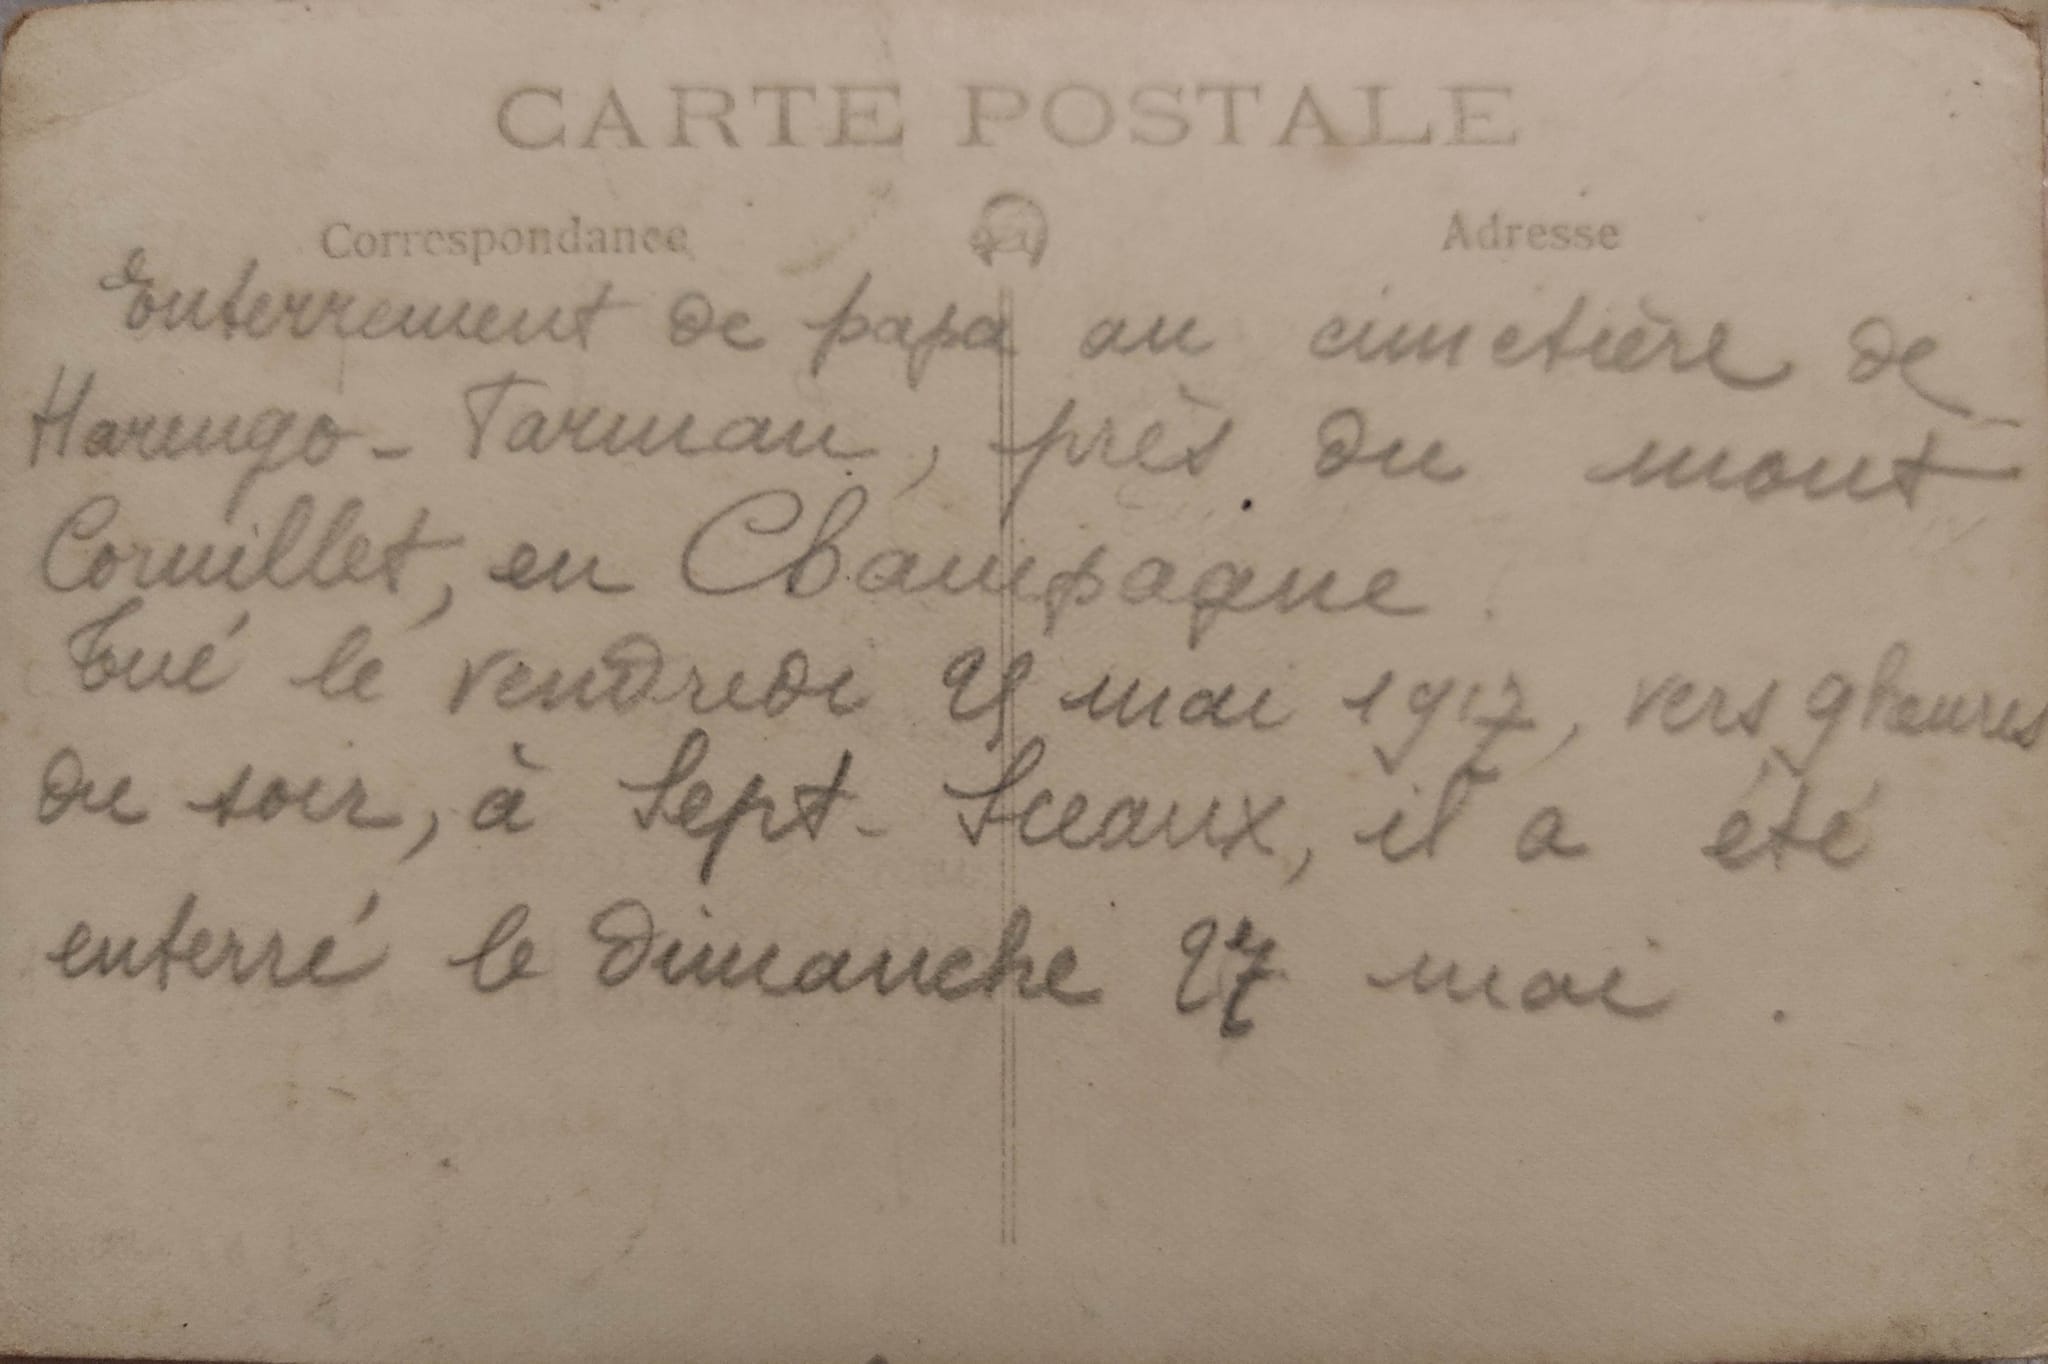 CARTE POSTALE
Correspondance Adresse
Enterrement de papa au cimetière de
Harengo - Tarman, près du mont
Cornillet, en Champagne.
Tué le vendredi 25 mai 1917, vers 9 heures
du soir, à Sept-Sceaux, il a été
enterré le dimanche 27 mai.